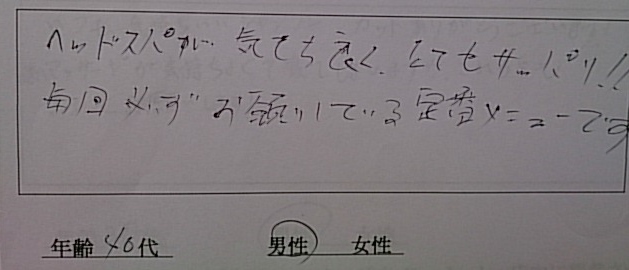 ヘッドスパが気もち良く、とてもサッパリ!!
毎回必ずお願いしている定番メニューです
年齢 40代 男性 女性